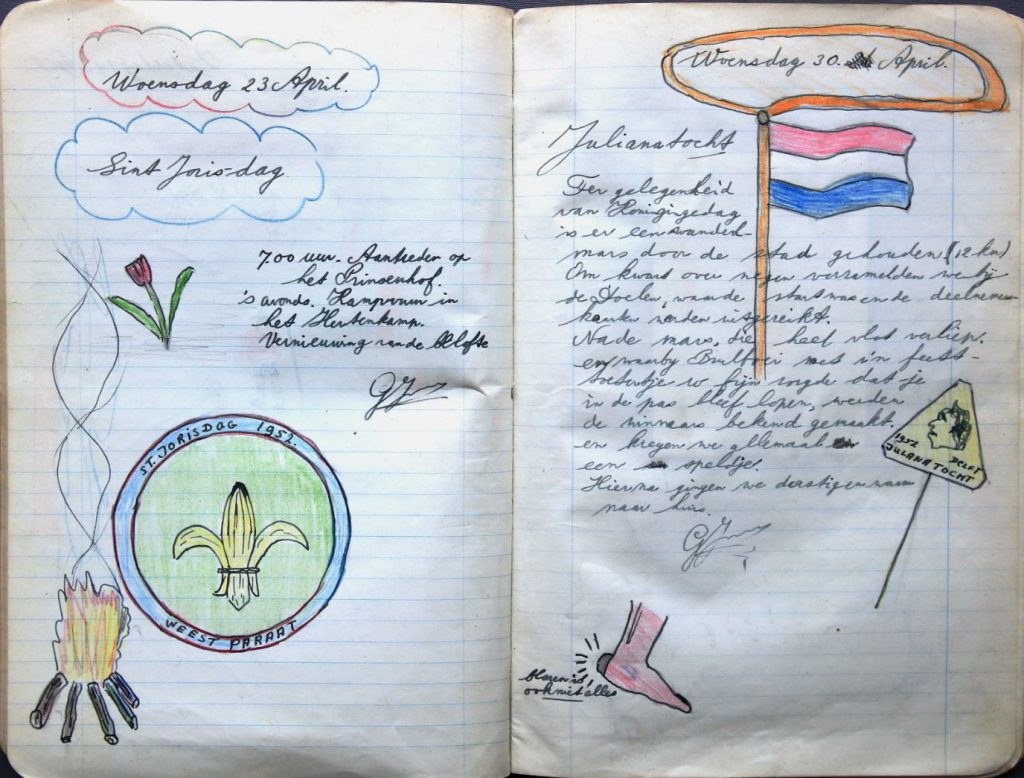 Woensdag 23 April.
Sint Joris-dag
7.00 uur. Aantreden op
het Prinsenhof.
's avonds. Kampvuur in
het Hertenkamp.
Vernieuwing van de Belofte
ST. JORISDAG 1952.
WEEST PARAAT
Woensdag 30 April.
Julianatocht
Ter gelegenheid
van Koninginnedag
is er een wandel-
mars door de stad gehouden (12 km)
Om kwart over negen verzamelden we bij
de Doelen, waar de start was en de deelnemers
kaarten werden uitgereikt.
Na de mars, die heel vlot verliep.
en waarby met z'n feest-
toetertje zo fijn zorgde dat je
in de pas bleef lopen, werden
de winnaars bekend gemaakt.
en kregen we allemaal
een speldje.
Hierna gingen we naar
naar huis.
1952 DELFT
JULIANA TOCHT
blaren is
ook niet alles